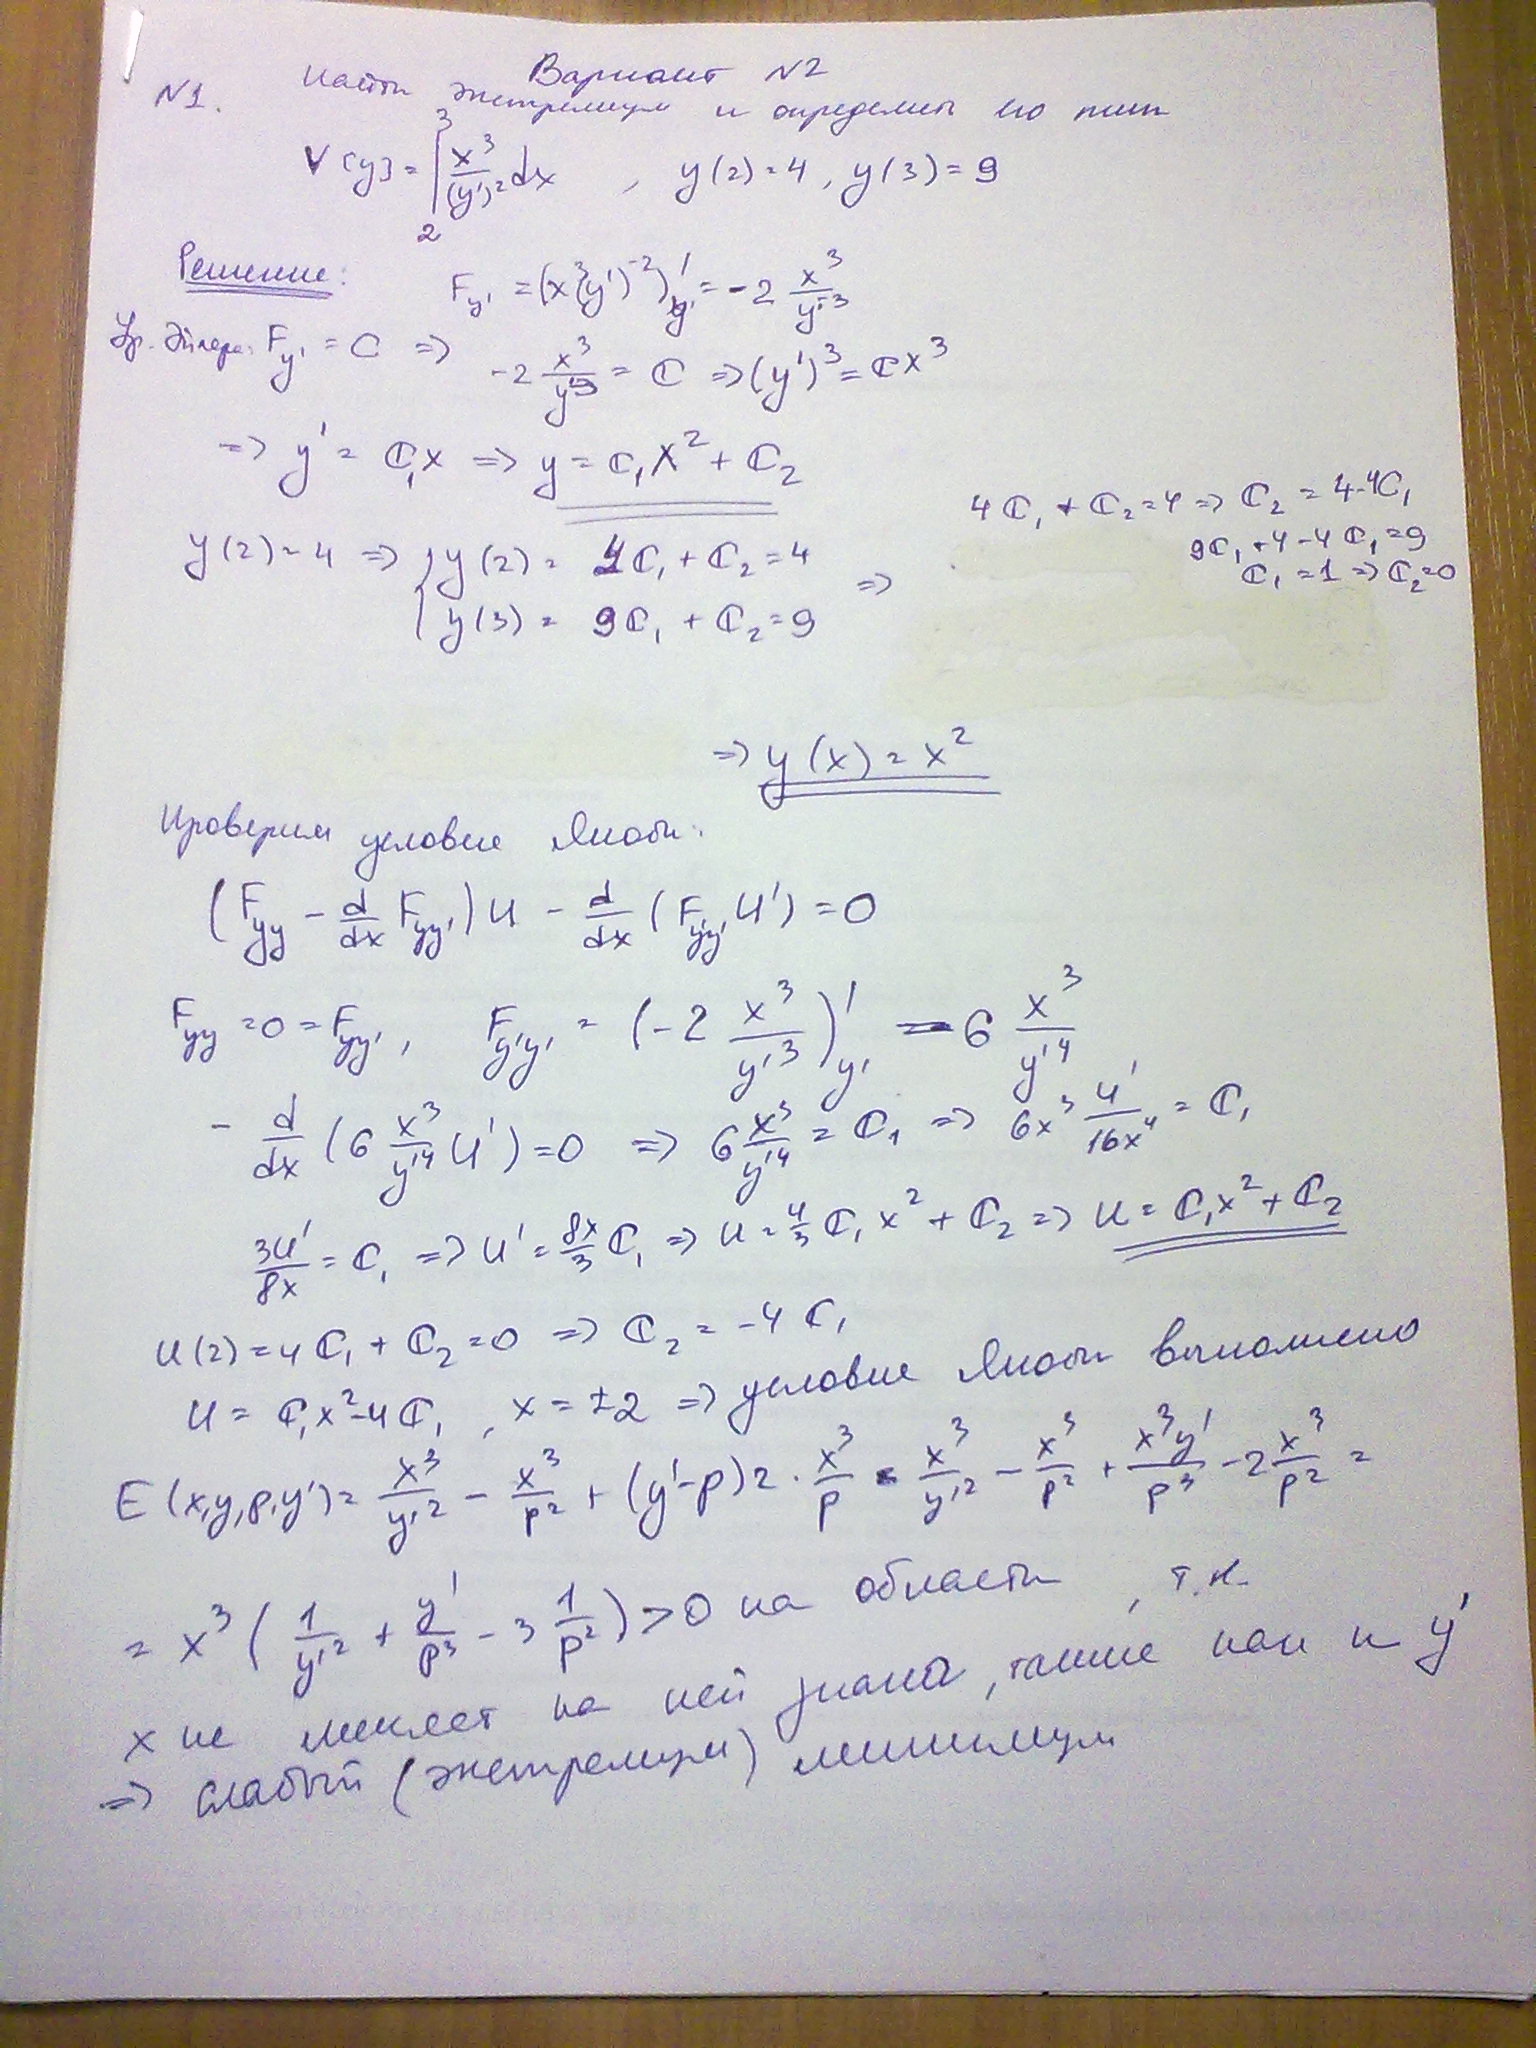 Вариант N2
N1. Найти экстремум и определить его тип
V[y] = ∫₂³ x³/(y')² dx , y(2)=4, y(3)=9
Решение: F_y' = (x³(y')⁻²)'_y' = -2 x³/y'³
Ур. Эйлера: F_y' = C => -2 x³/y'³ = C => (y')³ = Cx³
=> y' = C₁x => y = C₁x² + C₂
4C₁ + C₂ = 4 => C₂ = 4-4C₁
9C₁ + 4 - 4C₁ = 9
C₁ = 1 => C₂ = 0
y(2) = 4 => { y(2) = 4C₁ + C₂ = 4 =>
{ y(3) = 9C₁ + C₂ = 9
=> y(x) = x²
Проверим условие Якоби:
(F_yy - d/dx F_yy')u - d/dx (F_y'y' u') = 0
F_yy = 0 = F_yy', F_y'y' = (-2 x³/y'³)'_y' = 6 x³/y'⁴
- d/dx (6 x³/y'⁴ u') = 0 => 6 x³/y'⁴ = C₁ => 6x³ u'/16x⁴ = C₁
3u'/8x = C₁ => u' = 8x/3 C₁ => u = 4/3 C₁x² + C₂ => u = C₁x² + C₂
u(2) = 4C₁ + C₂ = 0 => C₂ = -4C₁
u = C₁x² - 4C₁, x = ±2 => условие Якоби выполнено
E(x,y,p,y') = x³/y'² - x³/p² + (y'-p)2·x³/p = x³/y'² - x³/p² + x³y'/p³ - 2 x³/p² =
= x³(1/y'² + y'/p³ - 3 1/p²) > 0 на области, т.к.
x не меняет на ней знака, также как и y'
=> слабый (экстремум) минимум